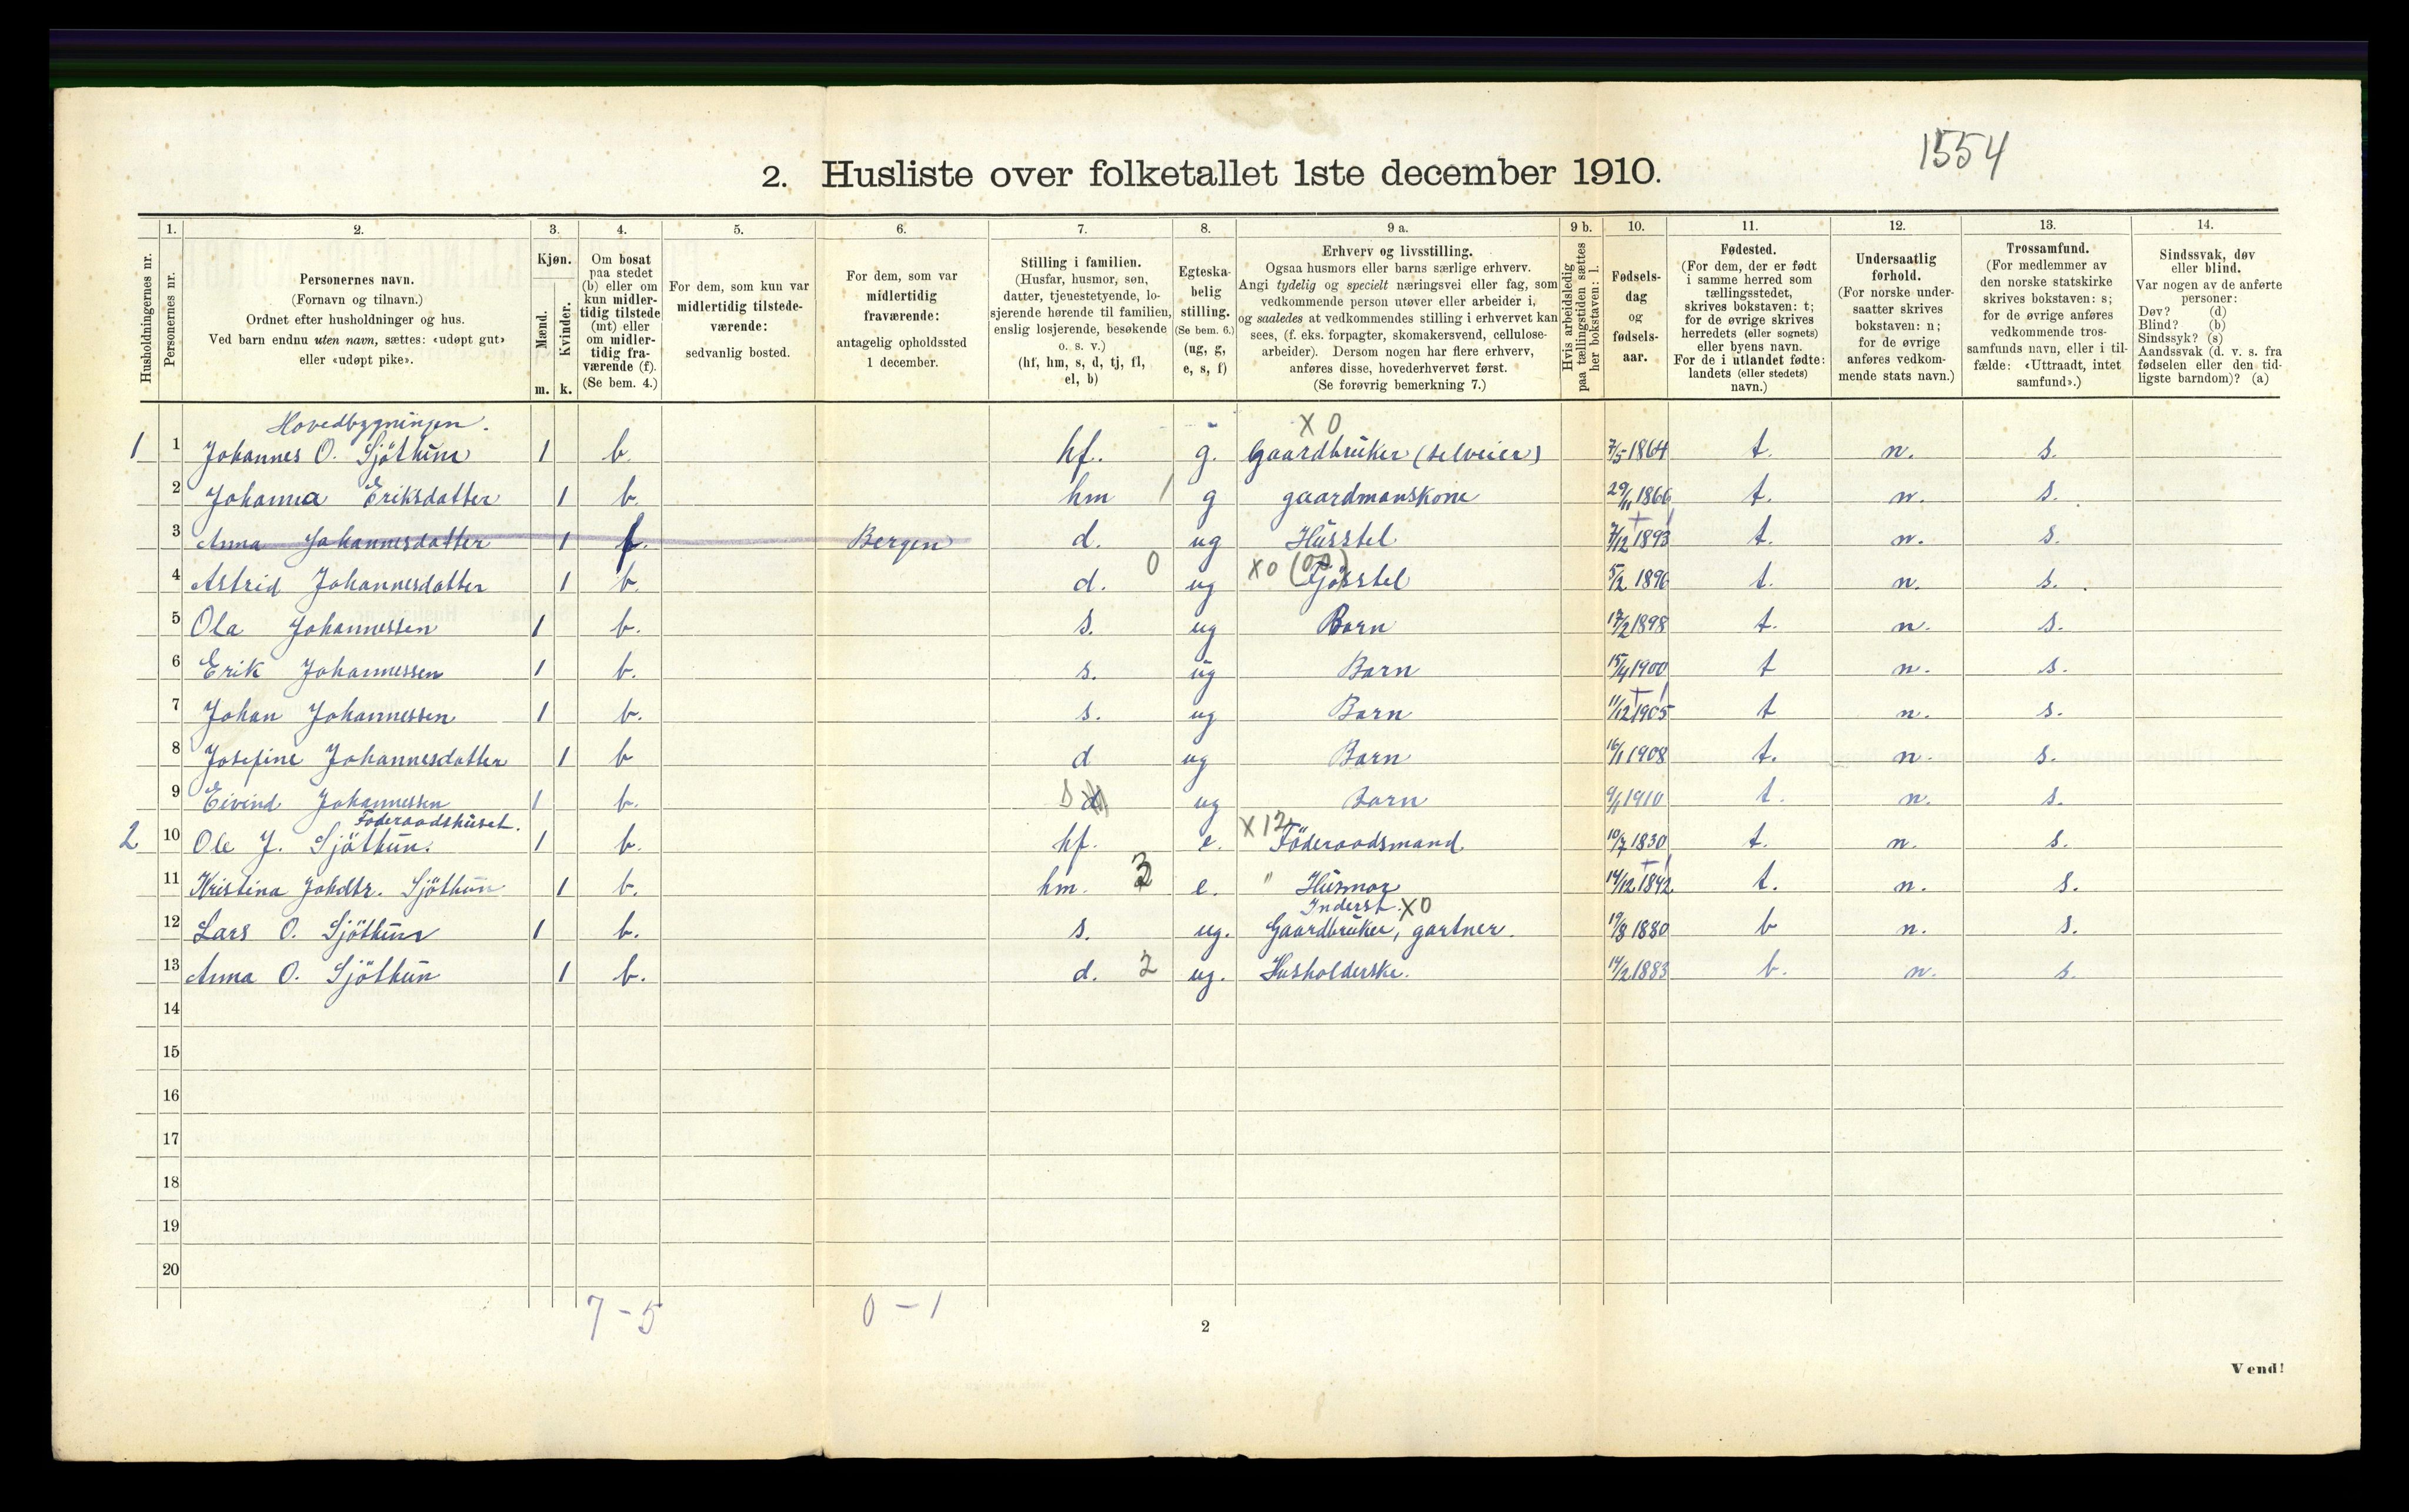 1554
2. Husliste over folketallet 1ste december 1910.
Husholdningernes nr.
1.
Personernes nr.
2.
Personernes navn.
(Fornavn og tilnavn.)
Ordnet efter husholdninger og hus.
Ved barn endnu uten navn, sættes: «udøpt gut»
eller «udøpt pike».
3.
Kjøn.
Mænd.
Kvinder.
m. k.
4.
Om bosat
paa stedet
(b) eller om
kun midler-
tidig tilstede
(mt) eller
om midler-
tidig fra-
værende (f).
(Se bem. 4.)
5.
For dem, som kun var
midlertidig tilstede-
værende:
sedvanlig bosted.
6.
For dem, som var
midlertidig
fraværende:
antagelig opholdssted
1 december.
7.
Stilling i familien.
(Husfar, husmor, søn,
datter, tjenestetyende, lo-
sjerende hørende til familien,
enslig losjerende, besøkende
o. s. v.)
(hf, hm, s, d, tj, fl,
el, b)
8.
Egteska-
belig
stilling.
(Se bem. 6.)
(ug, g,
e, s, f)
9 a.
Erhverv og livsstilling.
Ogsaa husmors eller barns særlige erhverv.
Angi tydelig og specielt næringsvei eller fag, som
vedkommende person utøver eller arbeider i,
og saaledes at vedkommendes stilling i erhvervet kan
sees, (f. eks. forpagter, skomakersvend, cellulose-
arbeider). Dersom nogen har flere erhverv,
anføres disse, hovederhvervet først.
(Se forøvrig bemerkning 7.)
9 b.
Hvis arbeidsledig
paa tællingstiden sættes
her bokstaven: l.
10.
Fødsels-
dag
og
fødsels-
aar.
11.
Fødested.
(For dem, der er født
i samme herred som
tællingsstedet,
skrives bokstaven: t;
for de øvrige skrives
herredets (eller sognets)
eller byens navn.
For de i utlandet fødte:
landets (eller stedets)
navn.)
12.
Undersaatlig
forhold.
(For norske under-
saatter skrives
bokstaven: n;
for de øvrige
anføres vedkom-
mende stats navn.)
13.
Trossamfund.
(For medlemmer av
den norske statskirke
skrives bokstaven: s;
for de øvrige anføres
vedkommende tros-
samfunds navn, eller i til-
fælde: «Uttraadt, intet
samfund».)
14.
Sindssvak, døv
eller blind.
Var nogen av de anførte
personer:
Døv? (d)
Blind? (b)
Sindssyk? (s)
Aandssvak (d. v. s. fra
fødselen eller den tid-
ligste barndom)? (a)
Hovedbygningen. X 0
1 1 Johannes O. Sjöthun 1 b. hf. g. Gaardbruker (selveier) 7/5 1864 t. n. s.
2 Johanna Eriksdatter 1 b. hm 1 g gaardmanskone 29/11 1866 t. n. s.
3 Anna Johannesdatter 1 f. Bergen d. ug Husstel 7/12 1893 t. n. s.
0 X0
4 Astrid Johannesdatter 1 b. d. ug Fjösstel 5/2 1896 t. n. s.
5 Ola Johannessen 1 b. s. ug Barn 17/2 1898 t. n. s.
6 Erik Johannessen 1 b. s. ug Barn 15/4 1900 t n. s.
7 Johan Johannessen 1 b. s. ug Barn 11/12 1905 t n. s.
8 Josefine Johannesdatter 1 b d ug Barn 16/1 1908 t. n. s.
9 Eivind Johannessen 1 b. s d ug Barn 9/1 1910 t. n. s.
Föderaadshuset. X12
2 10 Ole J. Sjöthun. 1 b. hf. e. Föderaadsmand 10/7 1830 t. n. s.
11 Kristina Johdtr. Sjöthun 1 b. hm. 3 e. " Husmor 14/12 1842 t. n. s.
Inderst. X0
12 Lars O. Sjöthun 1 b. s. ug. Gaardbruker, gartner. 19/8 1880 b n. s.
13 Anna O. Sjöthun 1 b. d. 2 ug. Husholderske. 14/2 1883 b. n. s.
14
15
16
17
18
19
20
7 - 5 0 - 1
2
Vend!